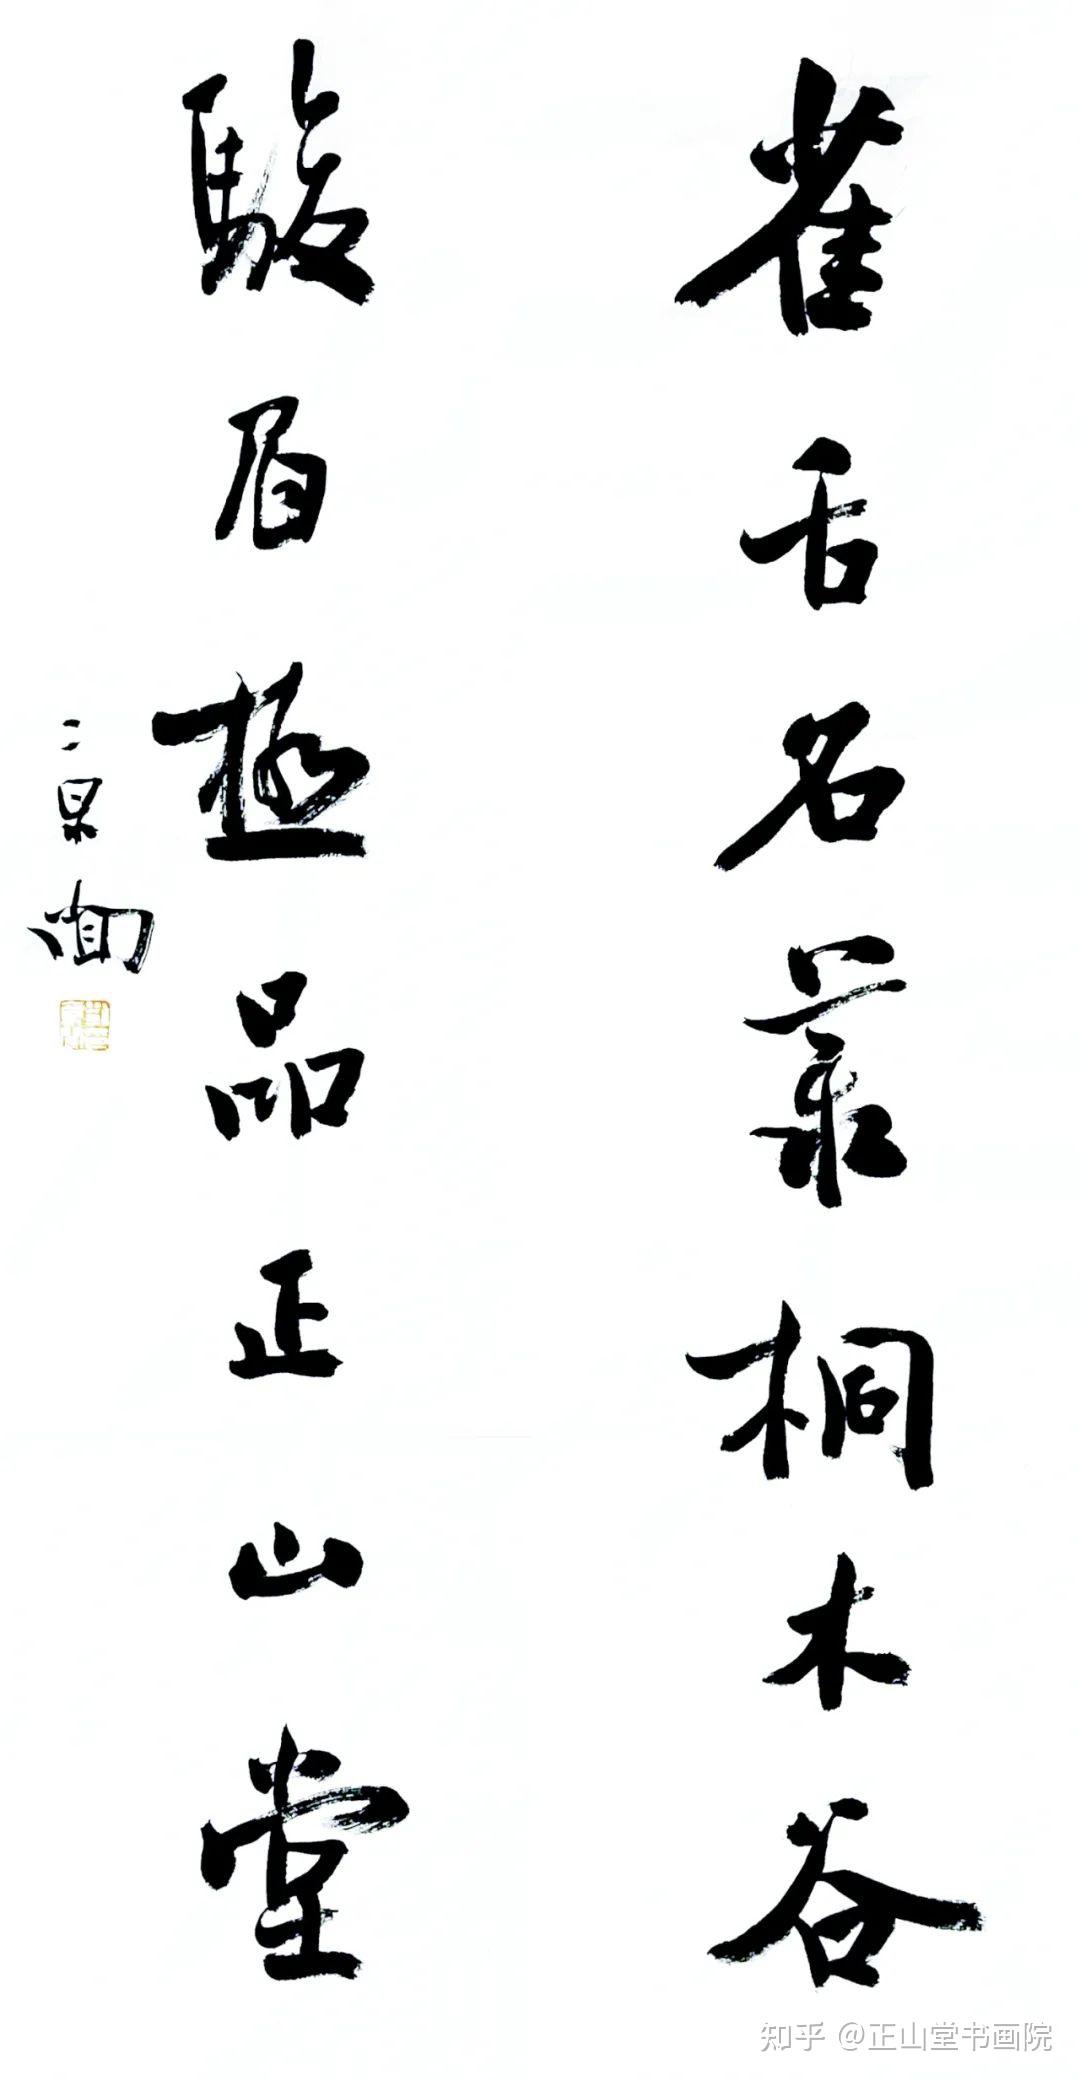 雀舌名叢桐木谷
駿眉極品正山堂
知乎 @正山堂书画院